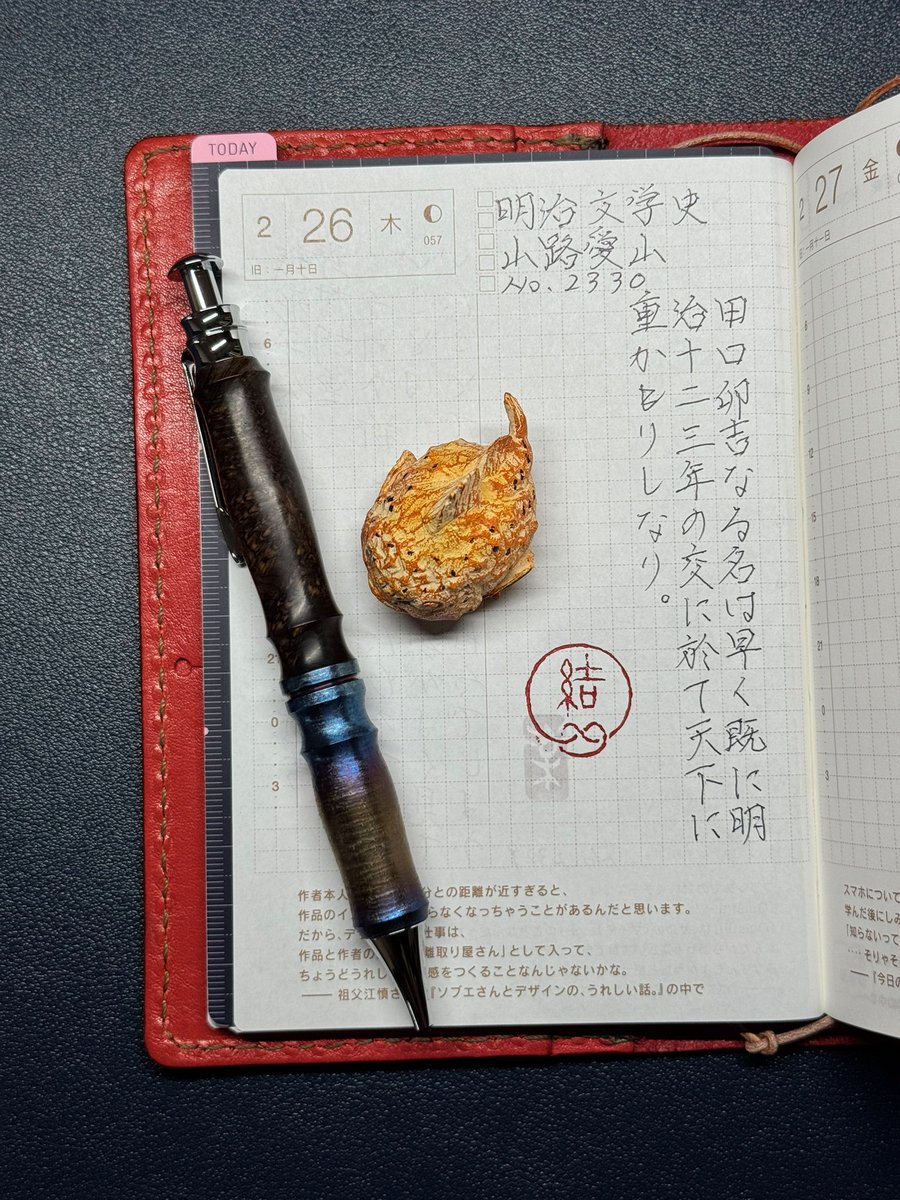 TODAY
2 26 木
057
旧:一月十日
明治文学史
山路愛山
No. 2330
田口卯吉なる名は早く既に明
治十二三年の交に於て天下に
重かもりしなり。
6
21
0
3
結
作者本人 分との距離が近すぎると、
作品のイ らなくなっちゃうことがあるんだと思います。
だから、デ 仕事は、
作品と作者の 離取り屋さん」として入って、
ちょうどうれし 感をつくることなんじゃないかな。
—— 祖父江慎さ 『ソブエさんとデザインの、うれしい話。』の中で
2 27 金
6
9
12
15
18
21
0
3
スマホについて
学んだ後にしみ
「知らないって
‥‥そりゃそ
——『今日の